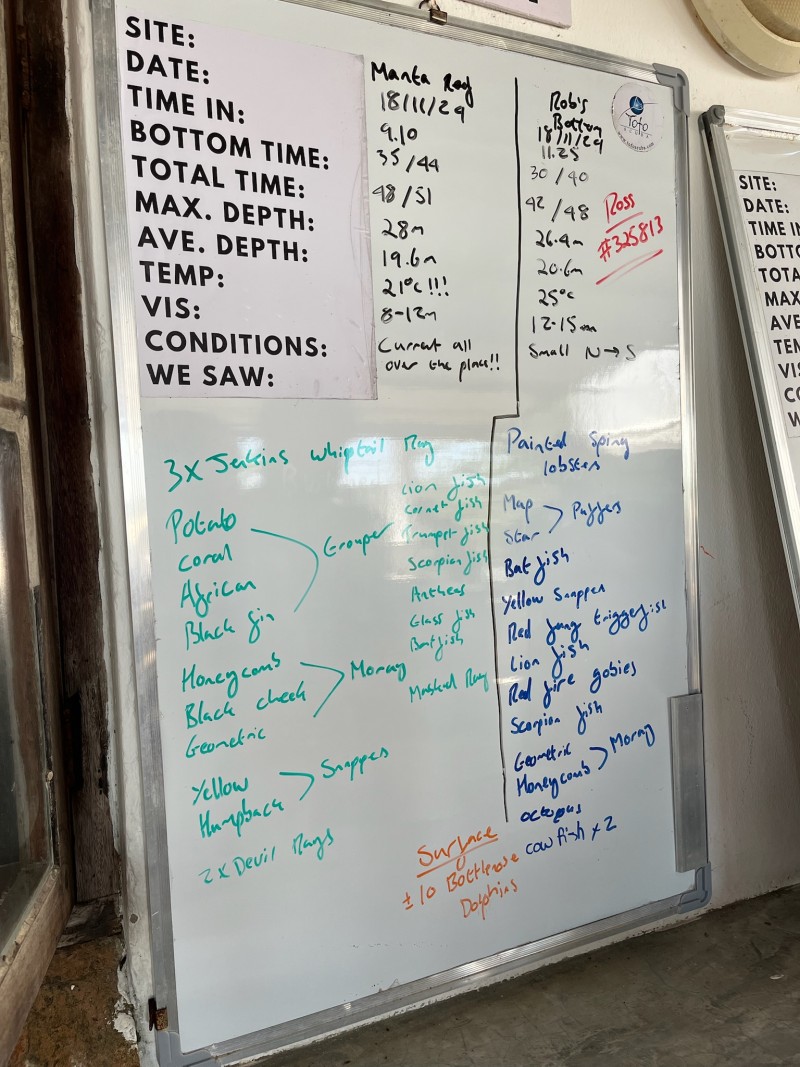 SITE:
DATE:
TIME IN:
BOTTOM TIME:
TOTAL TIME:
MAX. DEPTH:
AVE. DEPTH:
TEMP:
VIS:
CONDITIONS:
WE SAW:
Manta Reef
18/11/24
9.10
35/44
48/51
28m
19.6m
21°c!!!
8-12m
Current all
over the place!!
Rob's
Bottom
18/11/24
11.25
30/40
42/48
26.4m
20.6m
25°c
12-15m
Small N→S
Ross
#325813
Tofo
SCUBA
3x Jenkins whiptail Ray
Potato
Coral
African
Black fin
Grouper
Honeycomb
Black cheek
Geometric
Moray
Yellow
Humpback
Snapper
2x Devil Rays
Lion fish
Cornet fish
Trumpet fish
Scorpion fish
Antheas
Glass fish
Batfish
Masked Ray
Painted Spiny
lobsters
Map
Star
Puffers
Bat fish
Yellow Snapper
Red fang triggerfish
Lion fish
Red fire gobies
Scorpion fish
Geometric
Honeycomb
Moray
octopus
cowfish x2
Surface
±10 Bottlenose
Dolphins
SITE:
DATE:
TIME IN
BOTTO
TOTA
MAX
AVE
TEM
VIS
CO
W